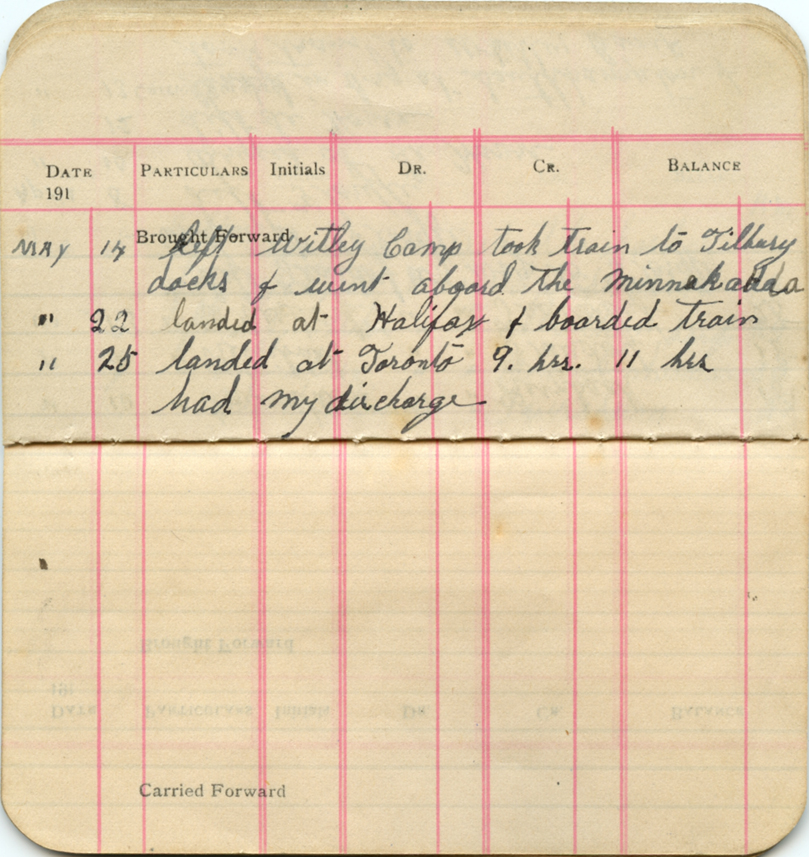 DATE PARTICULARS Initials DR. CR. BALANCE
191
Brought Forward
MAY 14 left Witley Camp took train to Tilbury
docks & went aboard the Minnekadda
" 22 landed at Halifax & boarded train
" 25 landed at Toronto 9. hrs. 11 hrs
had my discharge
Carried Forward